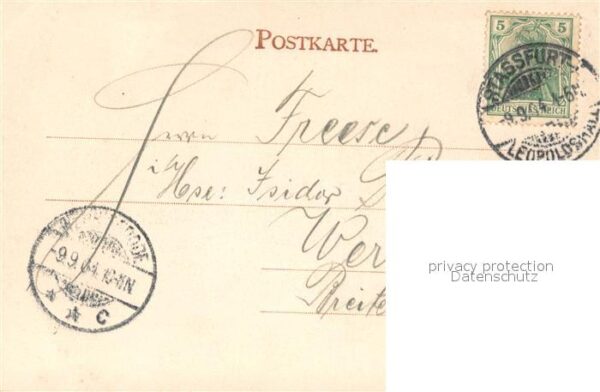 POSTKARTE.
5 5
DEUTSCHES REICH
STASSFURT-
LEOPOLDSHALL
Herrn Freese
i/Hse: Isidor
Wer
Breite
-9.9.04.10-11N
* * C
privacy protection
Datenschutz